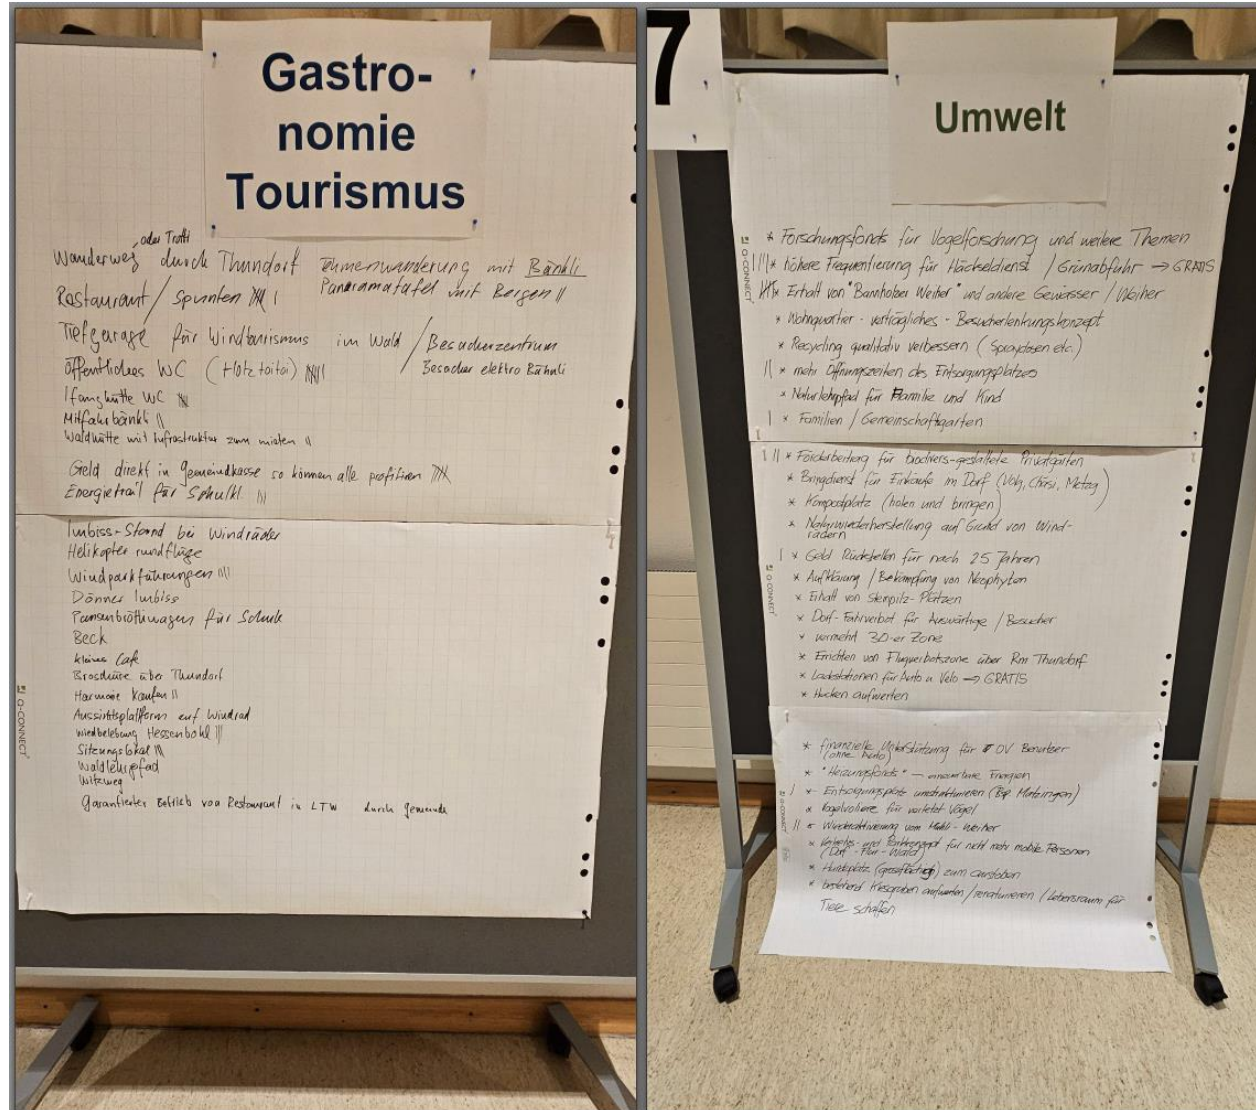 Gastro-
nomie
Tourismus
oder Trotti
Wanderweg durch Thundorf Themenwanderung mit Bänkli
Panoramatafel mit Bergen ||
Restaurant / Spunten |||| |
Tiefgarage für Windtourismus im Wald / Besucherzentrum
Besucher elektro Bähnli
öffentliches WC
WC
Mitfahrbänkli ||
Waldhütte mit Infrastruktur zum mieten ||
Geld direkt in gemeindkasse so können alle profitieren
Energietrail für Schulkl. |||
Imbiss-Stand bei Windräder
Helikopter rundflüge
Windparkführungen ||||
Dönner Imbiss
für Schule
Beck
kleines Cafe
Broschüre über Thundorf
Harmonie kaufen ||
Aussichtsplattform auf Windrad
Wiedbelebung Hessenbohl |||
Sitzungslokal |||
Waldlehrpfad
Witzweg
Garantierter Betrieb von Restaurant in LTW durch gemeinde
Q-CONNECT
7
Umwelt
* Forschungsfonds für Vogelforschung und weitere Themen
|||* höhere Frequentierung für Häckseldienst / Grünabfuhr → GRATIS
* Erhalt von "Bannholzer Weiher" und andere Gewässer / Weiher
* Wohnquartier - verträgliches - Besucherlenkungskonzept
* Recycling qualitativ verbessern (Spraydosen etc.)
|| * mehr Öffnungszeiten des Entsorgungsplatzes
* Naturlehrpfad für Familie und Kind
| * Familien / Gemeinschaftgarten
Q-CONNECT
||| * Förderbeitrag für biodivers-gestaltete Privatgärten
* Bringdienst für Einkäufe im Dorf (Volg, Chäsi, Metzg)
* Kompostplatz (holen und bringen)
* Naturwiederherstellung auf Grund von Wind-
rädern
| * Geld Rückstellen für nach 25 Jahren
* Aufklärung / Bekämpfung von Neophyten
* Erhalt von Steinpilz-Plätzen
* Dorf-Fahrverbot für Auswärtige / Besucher
* vermehrt 30-er Zone
* Errichten von Flugverbotszone über Rm Thundorf
* Ladestationen für Auto u Velo → GRATIS
* Hecken aufwerten
Q-CONNECT
* finanzielle Unterstützung für ÖV Benutzer
(ohne Auto)
* "Heizungsfonds" – erneuerbare Energien
| * Entsorgungsplatz umstrukturieren (Bsp Matzingen)
* Vogelvoliere für verletzt Vögel
|| * Wiederaktivierung vom Mühli-Weiher
für nicht mehr mobile Personen
(Dorf-Flur-Wald)
* Hundeplatz (grossflächig) zum austoben
* bestehend Kiesgruben aufwerten / renaturieren / Lebensraum für
Tiere schaffen
Q-CONNECT